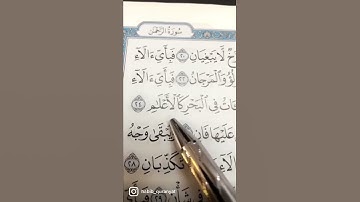 سُورَةُ الرَّحْمٰن
لَّا يَبْغِيَانِ ٢٠ فَبِأَيِّ ءَالَآءِ
وَالْمَرْجَانُ ٢٢ فَبِأَيِّ ءَالَآءِ
فِي الْبَحْرِ كَالْأَعْلَٰمِ ٢٤
عَلَيْهَا فَانٍ وَيَبْقَىٰ وَجْهُ
تُكَذِّبَانِ ٢٨
شَأْنٍ ٢٩
habib_qurangat